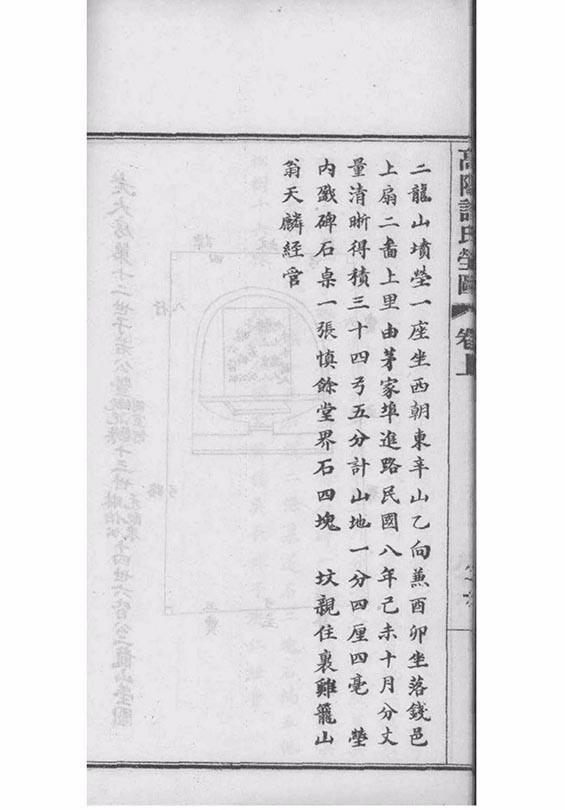 高陽許氏塋圖 卷上
二龍山墳塋一座坐西朝東辛山乙向兼酉卯坐落錢邑
上扇二啚上里由茅家埠進路民國八年己未十月分丈
量清晰得積三十四弓五分計山地一分四厘四毫 塋
內戤碑石桌一張慎餘堂界石四塊 坟親住裏雞籠山
翁天麟經管